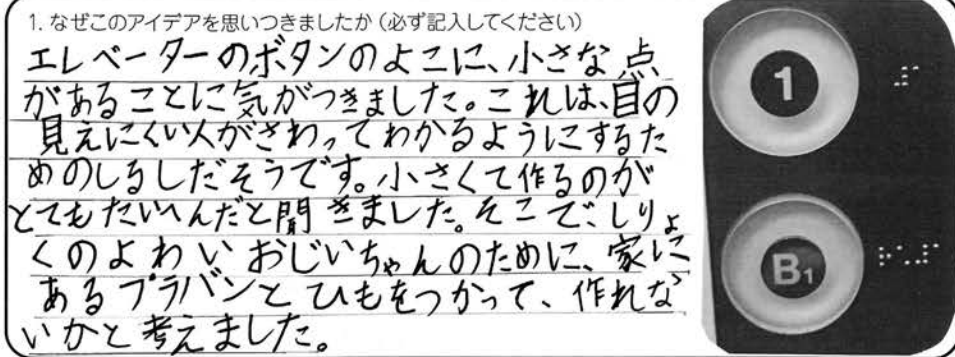 1. なぜこのアイデアを思いつきましたか（必ず記入してください）
エレベーターのボタンのよこに、小さな点
があることに気がつきました。これは、目の
見えにくい人がさわってわかるようにするた
めのしるしだそうです。小さくて作るのが
とてもたいへんだと聞きました。そこで、しりょ
くのよわいおじいちゃんのために、家に
あるプラバンとひもをつかって、作れな
いかと考えました。
1
B1